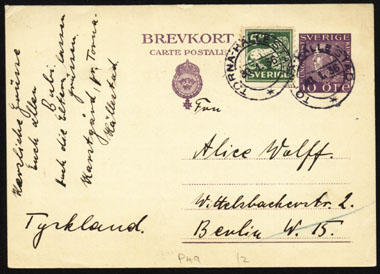 BREVKORT
CARTE POSTALE
SVERIGE
SVERIGE
10 ÖRE
TORNA-HÄLLESTAD
TORNA-HÄLLESTAD
Herzliche Grüsse
Euch allen
Eubi.
Auch die Eltern lassen
grüssen.
p. Torna-
Hällestad.
Frau
Alice Wolff.
Wittelsbacherstr. 2.
Berlin W. 15.
Tyskland.